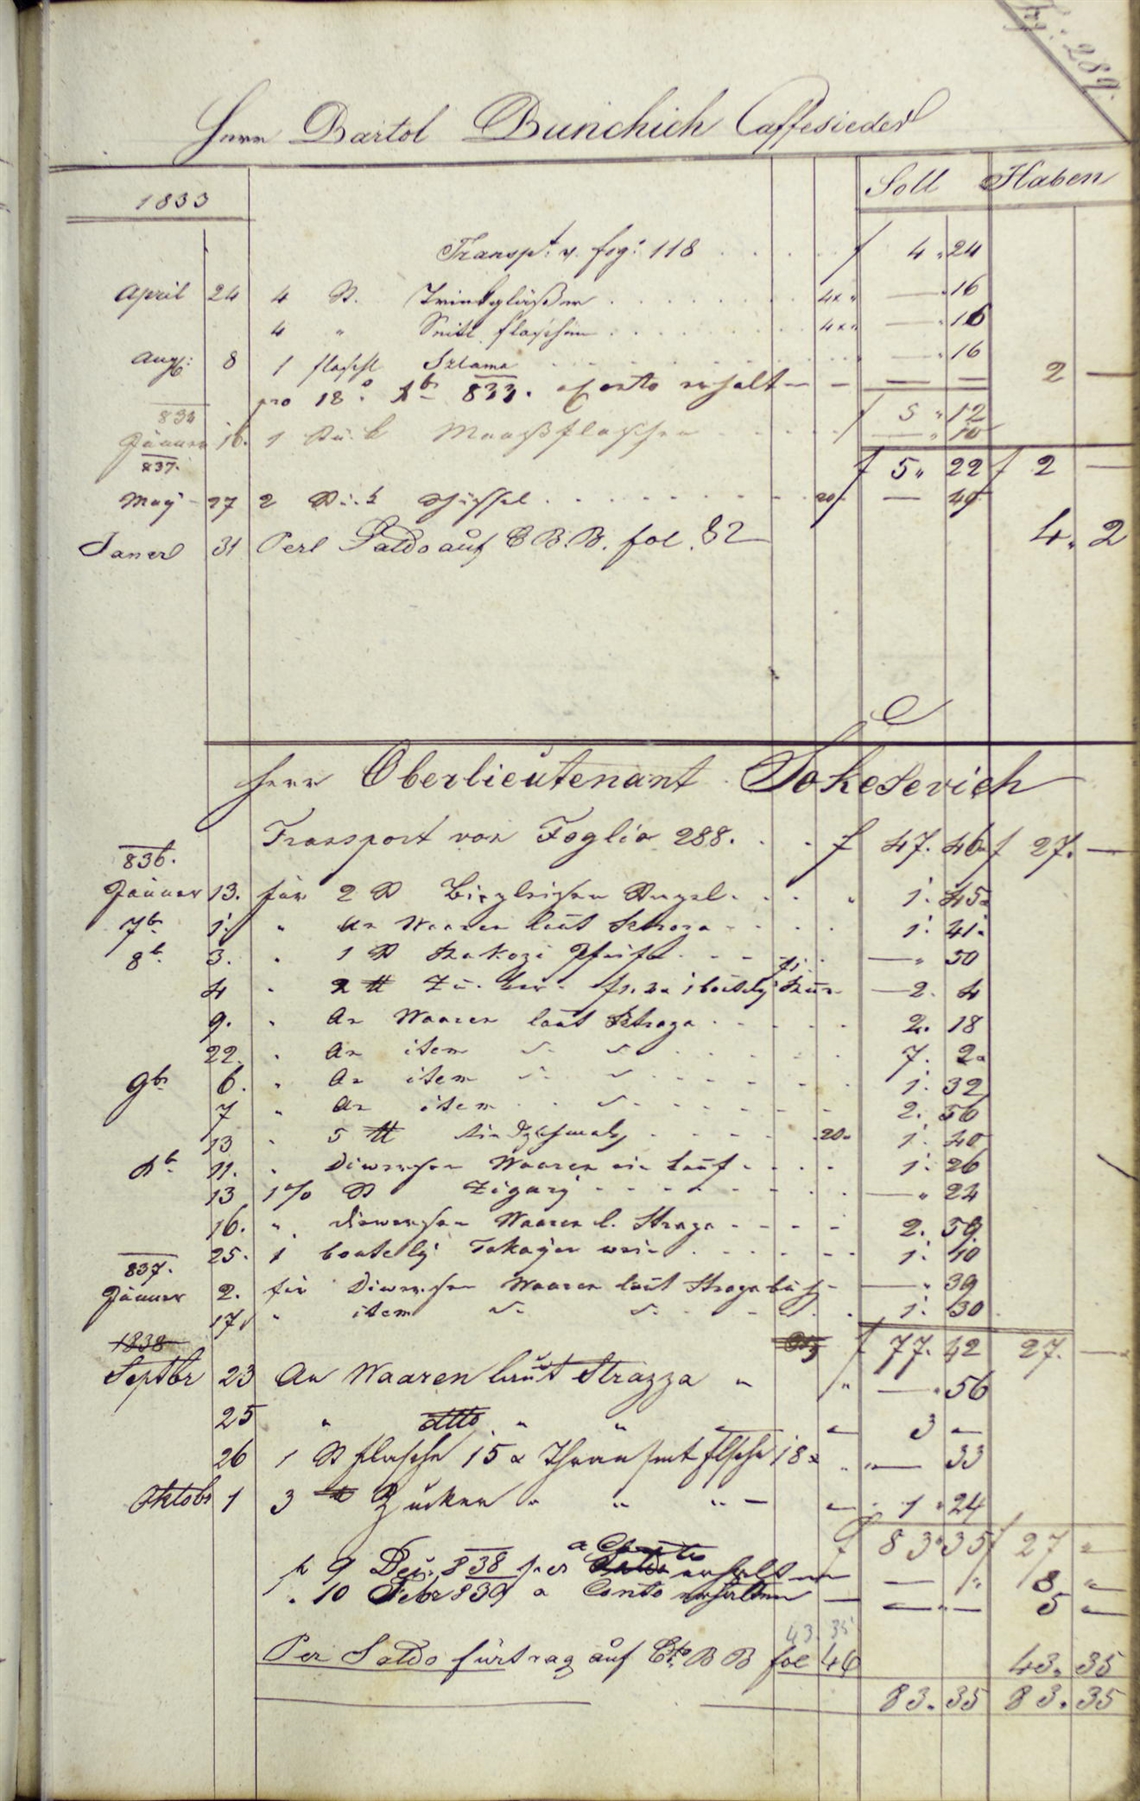 Fog: 289.
Herr Bartol Bunchich Caffesieder
Soll Haben
1833
Transpt. v. fog: 118 . . . . f 4 " 24
April 24 4 St. Trinkgläßer . . . . 4x " — " 16
4 " Seitl flaschen . . . . 4x " — " 16
Aug: 8 1 flaschl Sztama . . . . — " 16
pro 18 833. Conto erhalt — — — — 2 —
f 5 " 12
834
Jänner 16. 1 Stück Maaßflaschen . . . . — " 10
f 5 " 22 f 2 —
837.
May 27 2 Stück Schüssel . . . . 20 — 40
Janer 31 Perl Saldo auf C B. B. fol. 82 4. 2
Herr Oberlieutenant Sokesevich
Transport von Foglio 288. . . f 47. 46 f 27. —
836.
Jänner 13. für 2 St 1. 45
7b. 1. " An Waaren laut Straza . . . . 1. 41
8b. 3. " 1 St Rakozi Pfeife . . . — " 50
4 " 2 ℔ — 2. 4
9. " An Waaren laut Straza . . . . 2. 18
22. " An item . . . . 7. 2
9br 6. " An item . . . . 1. 32
7 " An item . . . . 2. 56
13 " 5 ℔ . . . . 20 1. 40
11. " Diwersen Waaren . . . . 1. 26
13 St Zigary . . . . — " 24
16. " diwersen Waaren l. Straza . . . . 2. 59
25. 1 boutely Tokayer wein . . . . 1. 10
837.
Jänner 2. für Diwersen Waaren laut Strazabuch — " 39
17. " item . . . . 1. 30
f 77. 42 27. —
1838
Septbr 23 An Waaren laut Strazza " " — " 56
25 " dtto " " 3 —
26 1 St flasche 15 x Thran samt flsche 18 x " — 33
Oktobr 1 3 ℔ Zucker " " " — 1 " 24
f 83 " 35 f 27 "
a Conto
p 9 838 erhalten — " 8 "
" 10 Febr 839 a Conto erhalten — — — 5 —
43. 35
Per Saldo fürtrag auf Cto B B fol 46 43. 35
83. 35 83. 35